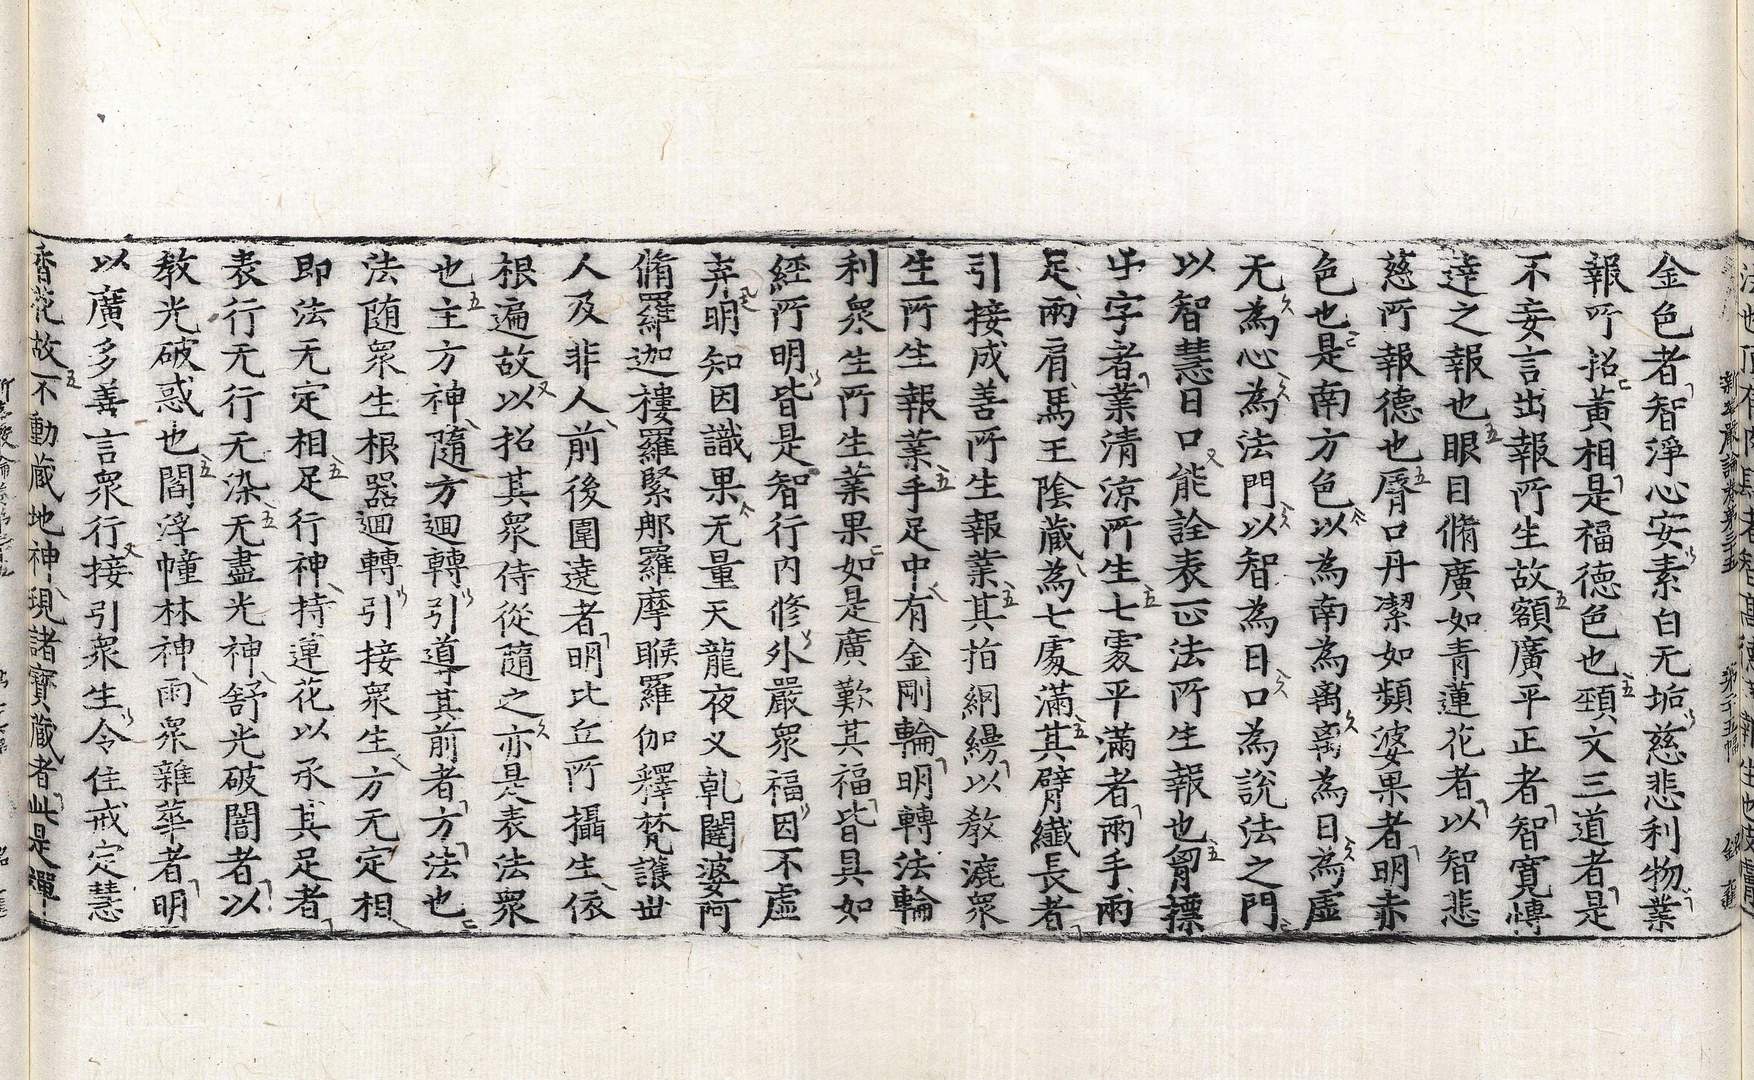 新華嚴論卷第三十五
金色者智淨心安素白无垢慈悲利物業
報所招黃相是福德色也頸文三道者是
不妄言出報所生故額廣平正者智寬慱
達之報也眼目脩廣如青蓮花者以智悲
慈所報德也脣口丹潔如頻婆果者明赤
色也是南方色以為南為离离為日為虛
无為心為法門以智為日口為說法之門
以智慧日口能詮表正法所生報也胷摽
卍字者業清涼所生七處平滿者兩手兩
足兩肩馬王陰藏為七處滿其臂纖長者
引接成善所生報業其指網縵以教漉衆
生所生報業手足中有金剛輪明轉法輪
利衆生所生業果如是廣歎其福皆具如
經所明皆是智行內修外嚴衆福因不虛
弃明知因識果无量天龍夜叉乹闥婆阿
脩羅迦樓羅緊那羅摩睺羅伽釋梵護世
人及非人前後圍遶者明比丘所攝生依
根遍故以招其衆侍從隨之亦是表法衆
也主方神隨方迴轉引導其前者方法也
法随衆生根器迴轉引接衆生方无定相
即法无定相足行神持蓮花以承其足者
表行无行无染无盡光神舒光破闇者以
教光破惑也閻浮幢林神雨衆雜華者明
以廣多善言衆行接引衆生令住戒定慧
香花故不動藏地神現諸寶藏者此是禪